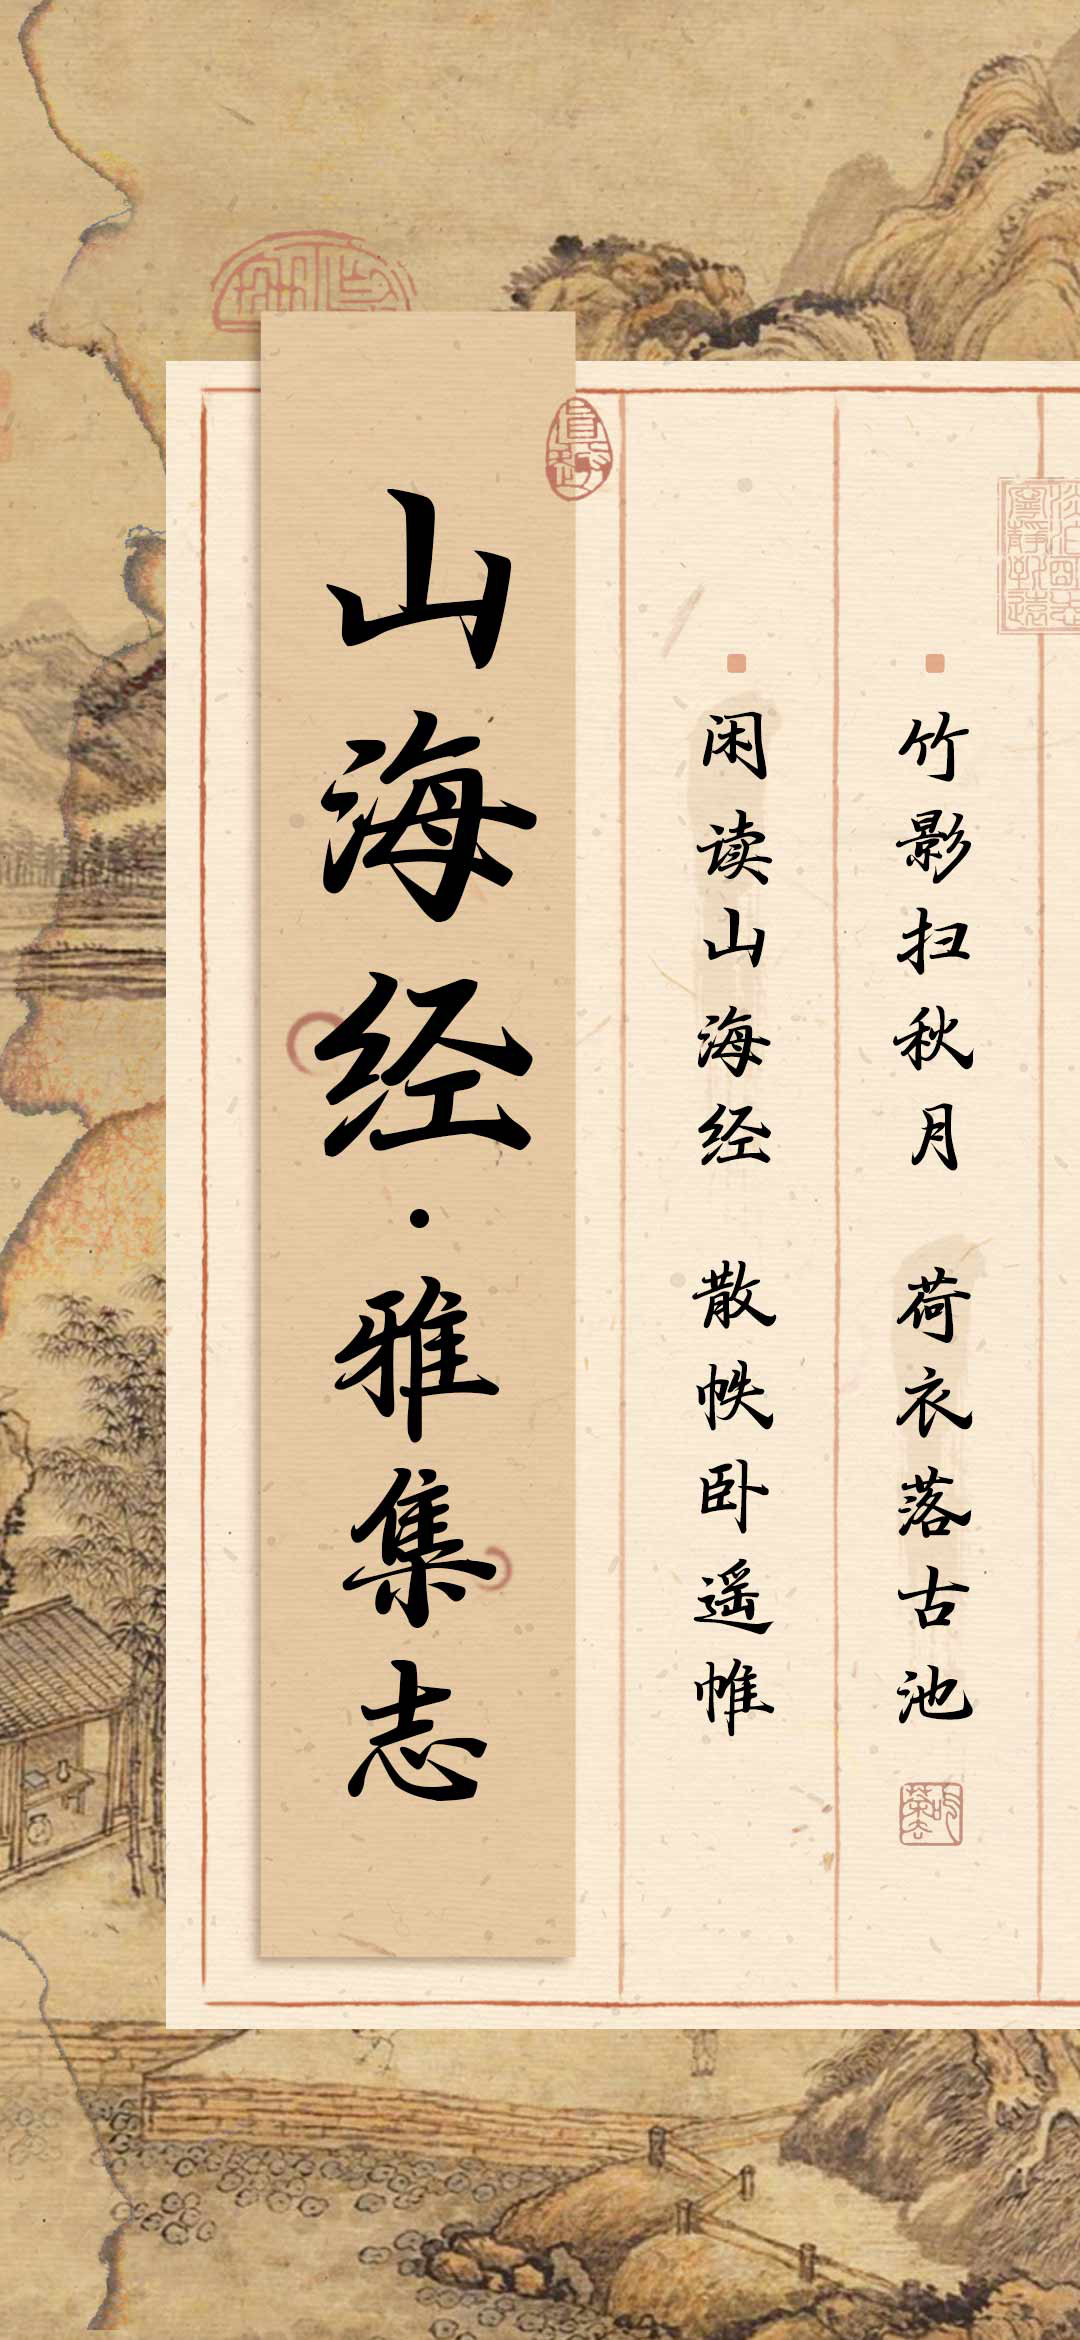 竹影扫秋月 荷衣落古池
闲读山海经 散帙卧遥帷
山海经·雅集志